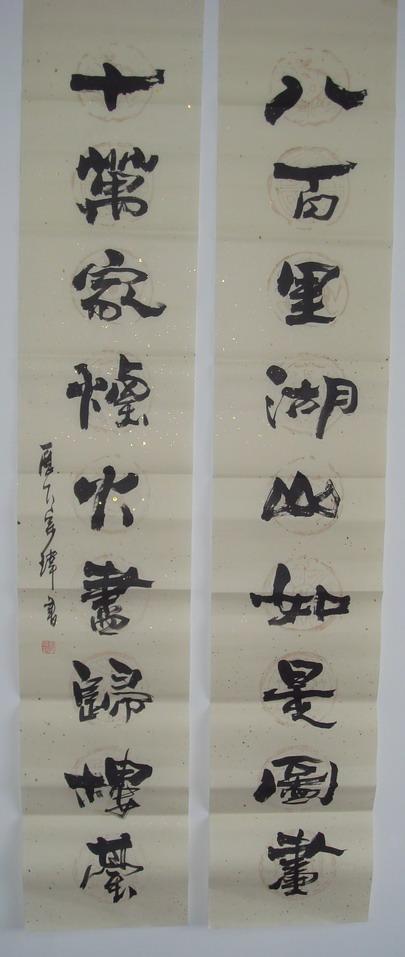 八百里湖山如是圖畫
十萬家煙火盡歸樓臺